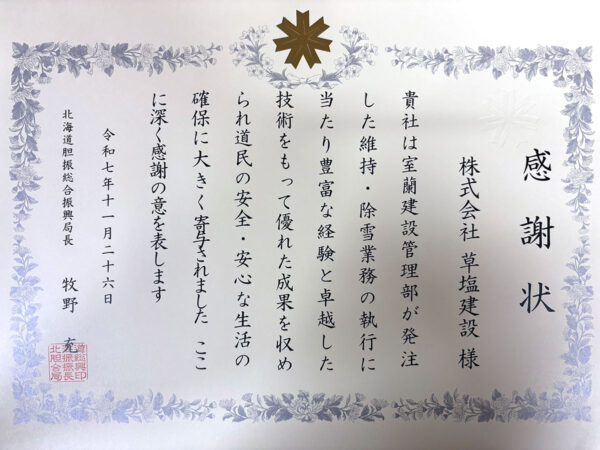 感謝状
株式会社 草塩建設 様
貴社は室蘭建設管理部が発注
した維持・除雪業務の執行に
当たり豊富な経験と卓越した
技術をもって優れた成果を収め
られ道民の安全・安心な生活の
確保に大きく寄与されました ここ
に深く感謝の意を表します
令和七年十一月二十六日
北海道胆振総合振興局長 牧野 充